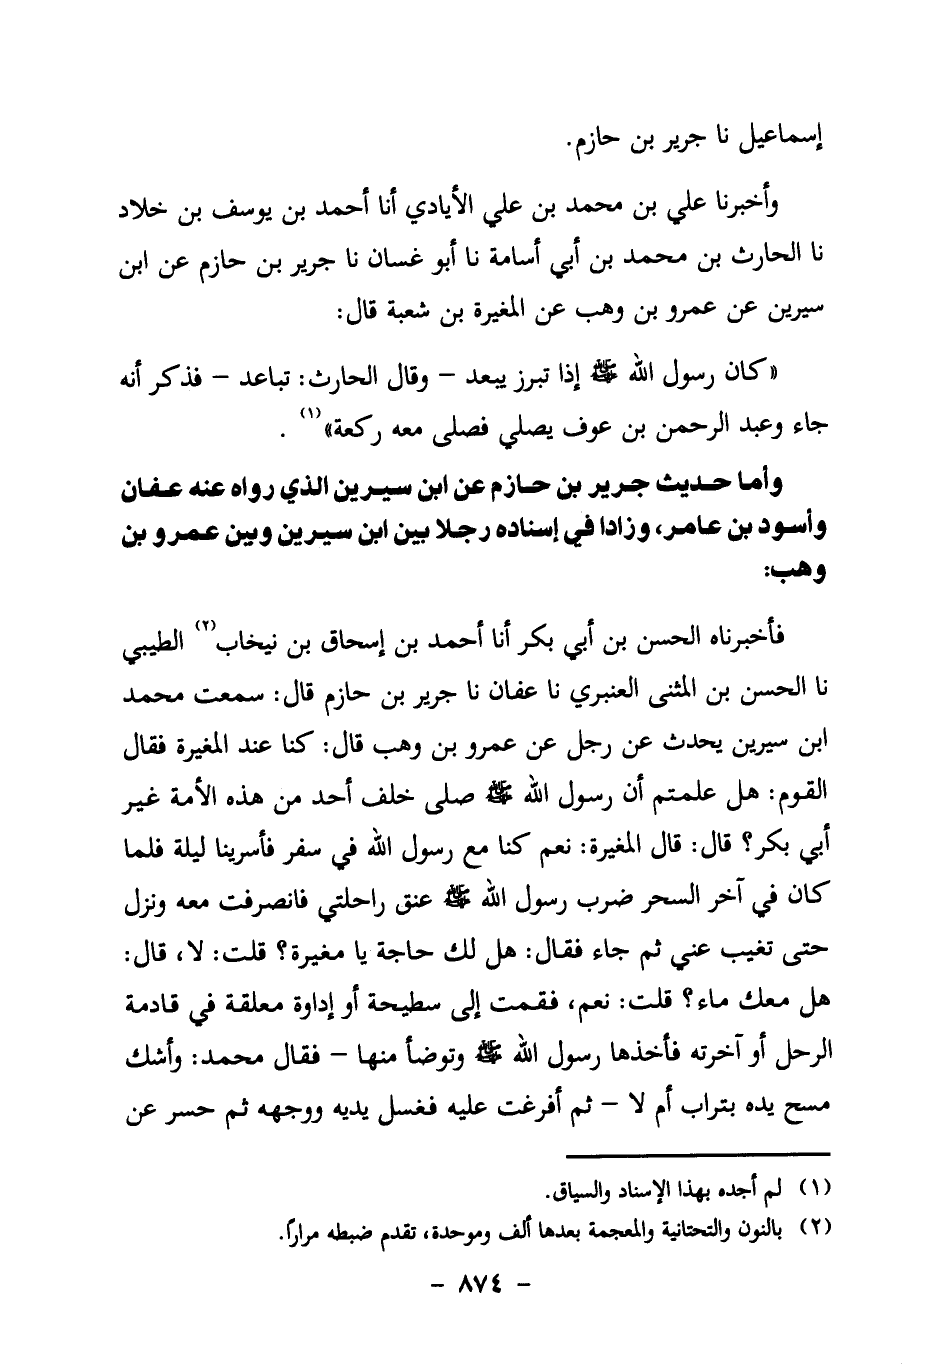 إسماعيل نا جرير بن حازم.
وأخبرنا علي بن محمد بن علي الأيادي أنا أحمد بن يوسف بن خلاد
نا الحارث بن محمد بن أبي أسامة نا أبو غسان نا جرير بن حازم عن ابن
سيرين عن عمرو بن وهب عن المغيرة بن شعبة قال:
«كان رسول الله ﷺ إذا تبرز يبعد – وقال الحارث: تباعد – فذكر أنه
جاء وعبد الرحمن بن عوف يصلي فصلى معه ركعة»(١) .
وأما حديث جرير بن حازم عن ابن سيرين الذي رواه عنه عفان
وأسود بن عامر، وزادا في إسناده رجلا بين ابن سيرين وبين عمرو بن
وهب:
فأخبرناه الحسن بن أبي بكر أنا أحمد بن إسحاق بن نيخاب(٢) الطيبي
نا الحسن بن المثنى العنبري نا عفان نا جرير بن حازم قال: سمعت محمد
ابن سيرين يحدث عن رجل عن عمرو بن وهب قال: كنا عند المغيرة فقال
القوم: هل علمتم أن رسول الله ﷺ صلى خلف أحد من هذه الأمة غير
أبي بكر؟ قال: قال المغيرة: نعم كنا مع رسول الله في سفر فأسرينا ليلة فلما
كان في آخر السحر ضرب رسول الله ﷺ عنق راحلتي فانصرفت معه ونزل
حتى تغيب عني ثم جاء فقال: هل لك حاجة يا مغيرة؟ قلت: لا، قال:
هل معك ماء؟ قلت: نعم، فقمت إلى سطيحة أو إداوة معلقة في قادمة
الرحل أو آخرته فأخذها رسول الله ﷺ وتوضأ منها – فقال محمد: وأشك
مسح يده بتراب أم لا – ثم أفرغت عليه فغسل يديه ووجهه ثم حسر عن
(١) لم أجده بهذا الإسناد والسياق.
(٢) بالنون والتحتانية والمعجمة بعدها ألف وموحدة، تقدم ضبطه مراراً.
– ٨٧٤ –